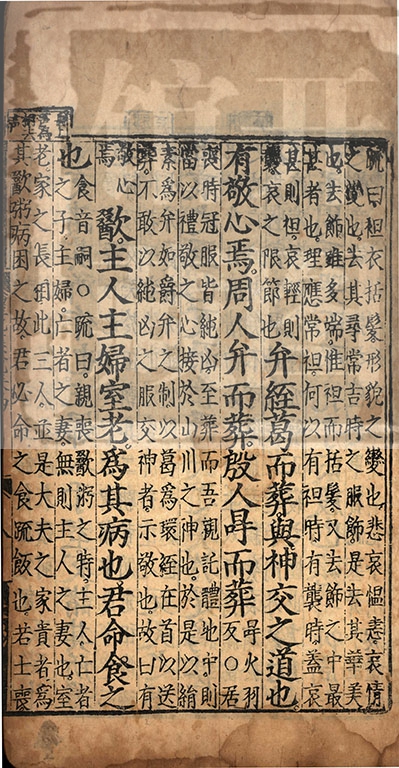 疏曰袒衣括髮形貌之變也悲哀慍恚哀情
之變也去其尋常吉時之服飾是去其華美
也去飾雖多端惟袒而括髮又去飾之中最
甚者也理應常袒何以有袒時有襲時蓋哀
甚則袒哀輕則
襲哀之限節也
弁絰葛而葬與神交之道也
有敬心焉周人弁而葬殷人冔而葬
冔火羽
反○居
喪時冠服皆純凶至葬而吾親託體地中則
當以禮敬之心接於山川之神也於是以絹
素爲弁如爵弁之制以葛爲環絰在首以送
葬不敢以純凶之服交神者示敬也故曰有
敬心
焉
歠主人主婦室老爲其病也君命食之
也
食音嗣○疏曰親喪歠粥之時主人亡者
之子主婦亡者之妻無則主人之妻也室
老家之長相此三人並是大夫之家貴者爲
其歠粥病困之故君必命之食疏飯也若士喪